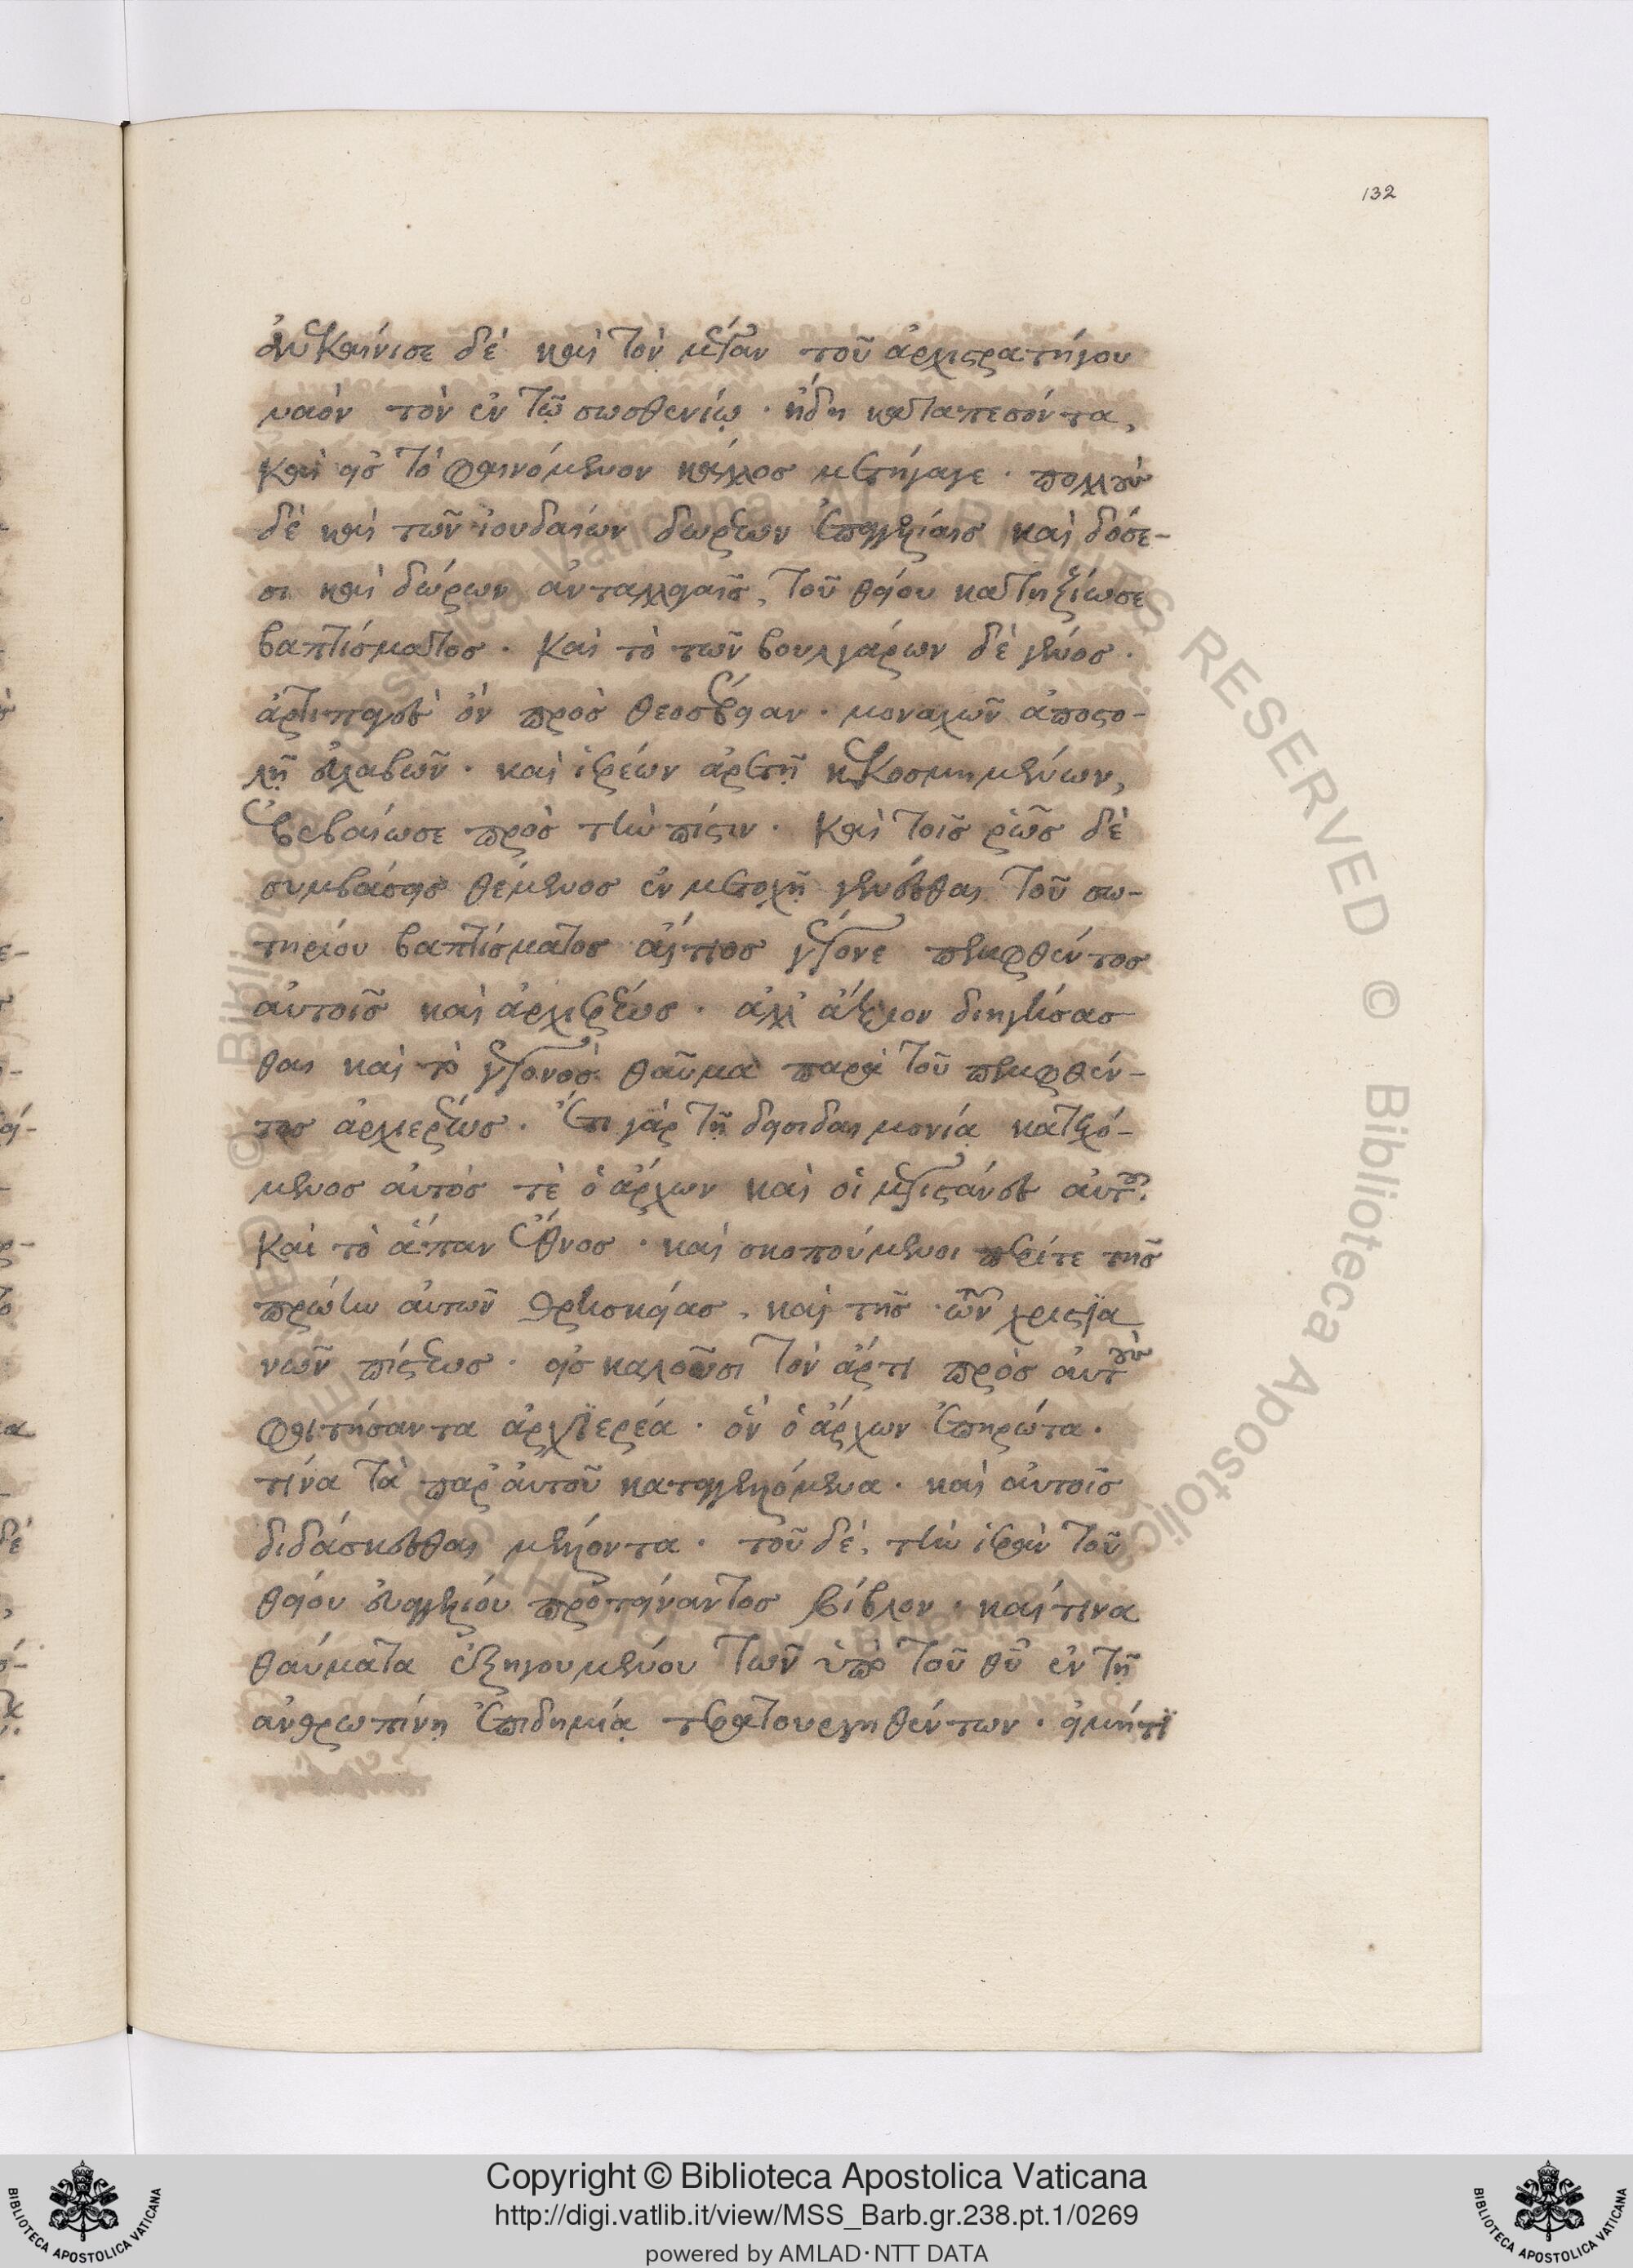 132
ἀνεκαίνισε δὲ καὶ τὸν μέγαν τοῦ ἀρχιστρατήγου
ναὸν τὸν ἐν τῷ σωσθενίῳ · ἤδη καταπεσόντα,
καὶ εἰς τὸ φαινόμενον κάλλος μετήγαγε · πολλοὺς
δὲ καὶ τῶν ἰουδαίων δωρεῶν ἐπαγγελίαις καὶ δόσε-
σι καὶ δώρων ἀνταλλαγαῖς, τοῦ θείου κατηξίωσε
βαπτίσματος · καὶ τὸ τῶν βουλγάρων δὲ γένος ·
ἀρτιπαγὲς ὂν πρὸς θεοσέβειαν · μοναχῶν ἀποστο-
λῇ εὐλαβῶν · καὶ ἱερέων ἀρετῇ κεκοσμημένων,
ἐβεβαίωσε πρὸς τὴν πίστιν · καὶ τοῖς ῥῶς δὲ
συμβάσεις θέμενος ἐν μετοχῇ γενέσθαι τοῦ σω-
τηρίου βαπτίσματος αἴτιος γέγονε πεμφθέντος
αὐτοῖς καὶ ἀρχιερέως · ἀλλ' ἄξιον διηγήσασ
θαι καὶ τὸ γεγονὸς θαῦμα παρὰ τοῦ πεμφθέν-
τος ἀρχιερέως · ἔτι γὰρ τῇ δεισιδαιμονίᾳ κατεχό-
μενος αὐτός τὲ ὁ ἄρχων καὶ οἱ μεγιστάνες αὐτοῦ.
καὶ τὸ ἅπαν ἔθνος · καὶ σκοπούμενοι περίτε τῆς
πρώην αὐτῶν θρησκείας, καὶ τῆς τῶν χριστια
νῶν πίστεως · εἰσκαλοῦσι τὸν ἄρτι πρὸς αὐτοὺς
φοιτήσαντα ἀρχϊερέα · ὃν ὁ ἄρχων ἐπηρώτα ·
τίνα τὰ παρ' αὐτοῦ καταγγελόμενα · καὶ αὐτοῖς
διδάσκεσθαι μέλλοντα · τοῦ δὲ, τὴν ἱερὰν τοῦ
θείου εὐαγγελίου προτείναντος βίβλον · καί τινα
θαύματα ἐξηγουμένου τῶν ὑπὸ τοῦ θῦ ἐν τῇ
ἀνθρωπίνῃ ἐπιδημίᾳ τερατουργηθέντων · εἰ μήτϊ
Copyright © Biblioteca Apostolica Vaticana
http://digi.vatlib.it/view/MSS_Barb.gr.238.pt.1/0269
powered by AMLAD·NTT DATA